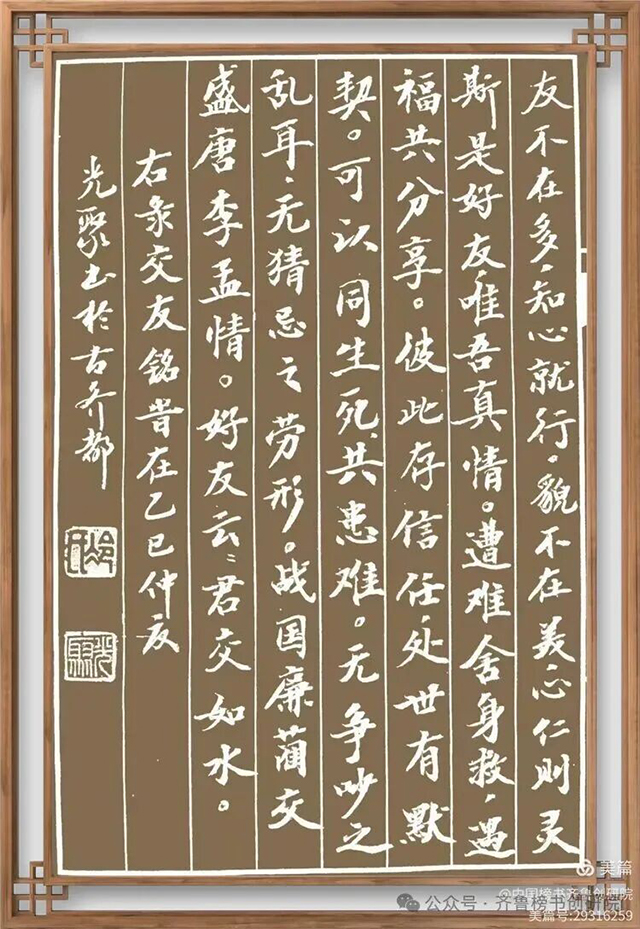 友不在多，知心就行。貌不在美，心仁则灵
斯是好友，唯吾真情。遭难舍身救，遇
福共分享。彼此存信任，处世有默
契。可以同生死，共患难。无争吵之
乱耳，无猜忌之劳形。战国廉蔺交
盛唐李孟情。好友云：君交如水。
右录交友铭 时在乙巳仲夏
光聚书於古齐都
美篇
@中国榜书齐鲁创研院
公众号·齐鲁榜书创研院
美篇号:29316259